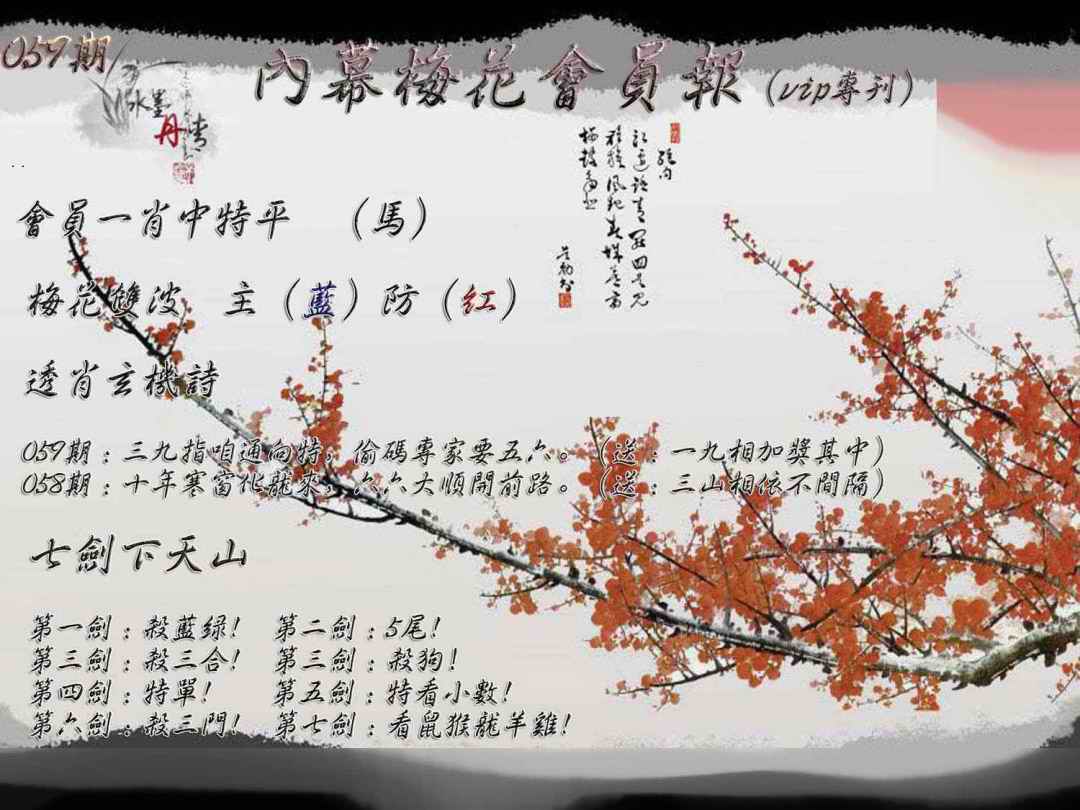 059期
內幕梅花會員報(vip專刊)
水墨
丹青
會員一肖中特平 (馬)
梅花雙波 主(藍)防(紅)
透肖玄機詩
059期:三九指咱通向特,偷碼專家要五六。(送:一九相加獎其中)
058期:十年寒窗化龍來,六六大順開前路。(送:三山相依不間隔)
七劍下天山
第一劍:殺藍绿! 第二劍:5尾!
第三劍:殺三合! 第三劍:殺狗!
第四劍:特單! 第五劍:特看小數!
第六劍:殺三門! 第七劍:看鼠猴龍羊雞!